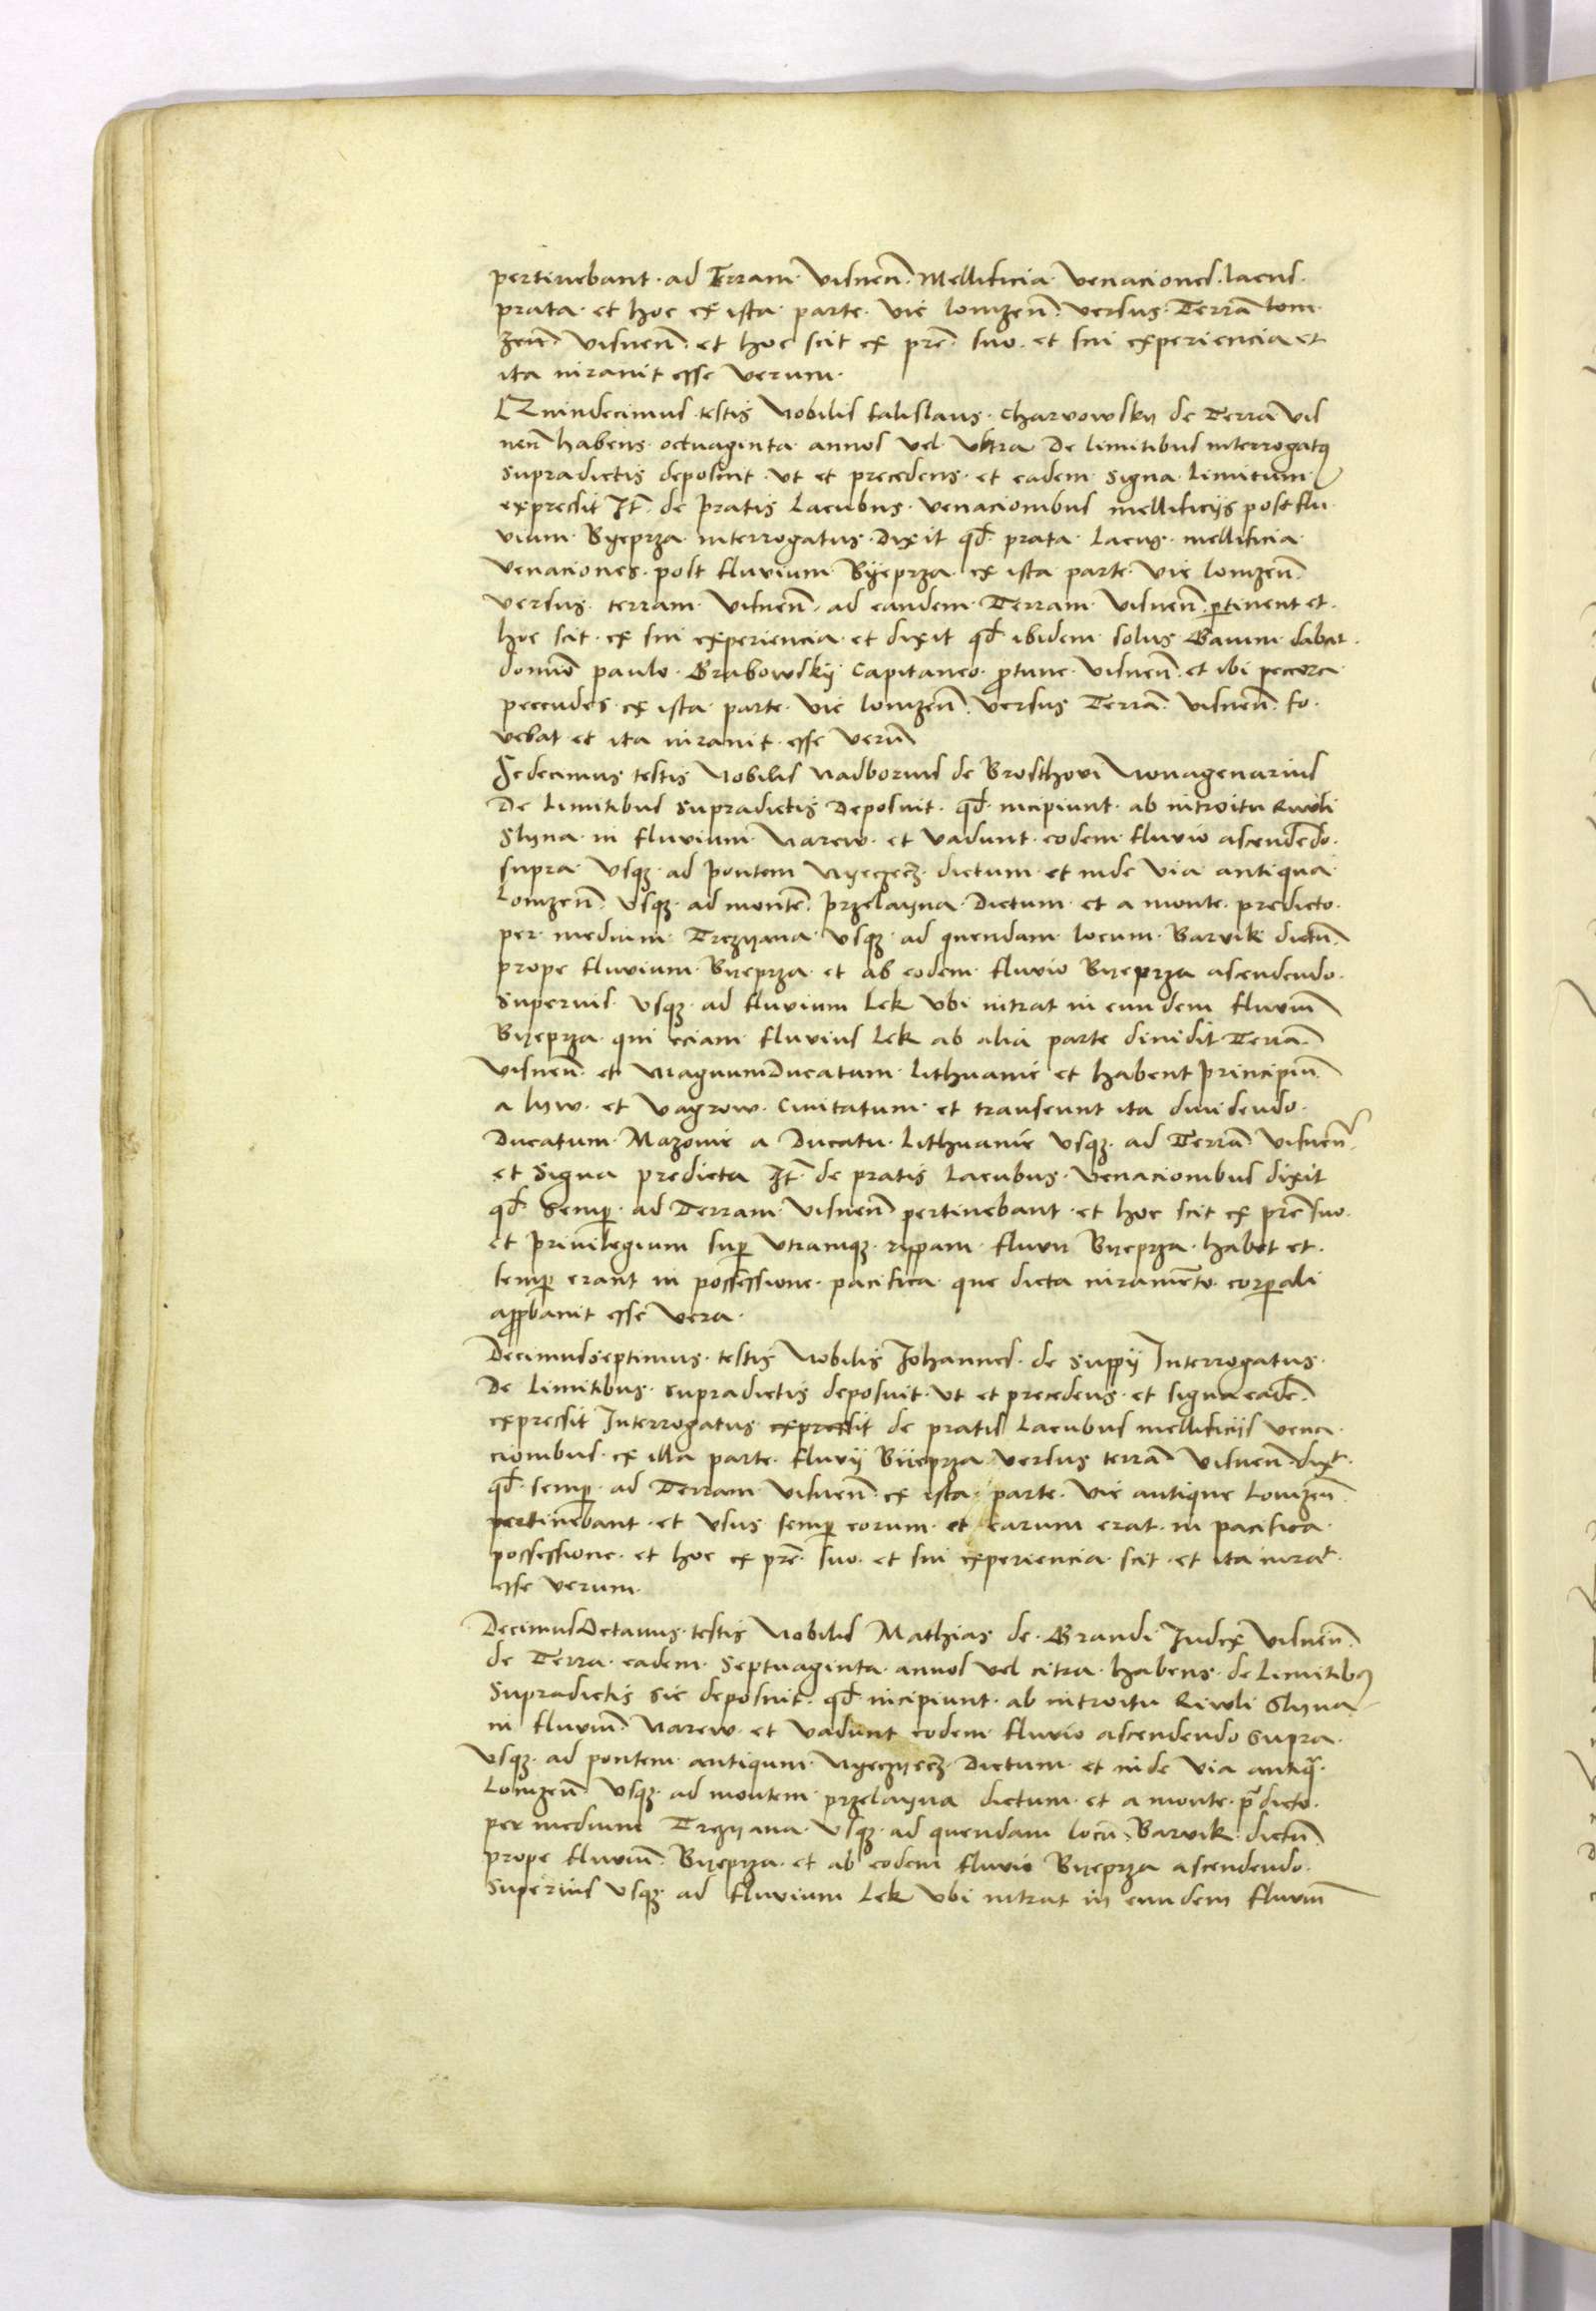 pertinebant · ad Terram · Visnen̄ · Mellificia · Venaciones · lacus ·
prata · et hoc ex ista · parte · vie lomzen̄ · versus · Terrā lom
zen̄ Visnen̄ · et hoc scit ex pr̄e · suo · et sui experiencia et
ita iuravit esse verum ·
Quindecimus · testis Nobilis Falislaus · Charvowsky de Terra vis
nen̄ habens · octuaginta · annos vel · vltra De limitibus interrogatꝰ
supradictis deposuit · vt et precedens · et eadem · signa · limitum
expressit It̄ · de pratis Lacubus · venacionibus mellificijs post flu
vium · Byeprza · interrogatus · Dixit qđ · prata · Lacus · mellificia ·
Venaciones · post fluvium Byeprza · ex ista parte · vie lomzen̄ ·
versus · terram · visnen̄ · ad eandem · Terram · visnen̄ · ꝑtinent et ·
hoc scit · ex sui experiencia · et dixit qđ ibidem · solus · Gaium · dabat ·
domīo paulo · Grabowsky Capitaneo · ꝓtunc · visnen̄ · et ibi peccora
peccudes · ex ista · parte · vie lomzen̄ · versus Terrā · visnen̄ · fo ·
vebat · et ita iuravit · esse verū
Sedecimus testis Nobilis Nadborius de Brosthovi Nonagenarius
De Limitibus supradictis Deposuit · qđ · incipiunt · ab introitu Riwli
Slyna · in fluvium · Narew · et vadunt · eodem · fluvio ascendēdo ·
supra · vsqꝫ · ad pontem Nyeczecz · dictum · et inde via · antiqua
Lomzen̄ · vsqꝫ · ad montē · przelayna · Dictum · et a monte · predicto ·
per · medium · Trezyana · vsqꝫ · ad quendam · locum · Barvik dictū ·
prope fluvium · Byeprza · et ab eodem · fluvio Byeprza ascendendo ·
superius · vsqꝫ · ad fluvium lek vbi intrat in eundem fluviū
Byeprza · qui eciam · fluvius lek ab alia parte dividit Terrā ·
visnen̄ · et MagnumDucatum · Lithvanie et habent principiū
a lyw · et vagrow · Civitatum · et transeunt ita dividendo ·
Ducatum · Mazovie a Ducatu · Lithvanie vsqꝫ · ad Terrā visnen̄ ·
et signa predicta It̄ · de pratis Lacubus · venacionibus dixit
qđ · semꝑ · ad Terram · visnen̄ pertinebant · et hoc scit ex pr̄e suo ·
et privilegium suꝑ vtramqꝫ · rippam · fluvii Byeprza · habet et ·
semꝑ erant in possessione · pacifica · que dicta iuramēto · corꝑali
aꝓbavit esse vera ·
Decimusseptimus · testis Nobilis Johannes · de suppy Interrogatus ·
De Limitibus · supradictis deposuit · vt et precedens · et signa eadē ·
expressit Interrogatus expressit de pratis Lacubus mellificijs vena
cionibus · ex illa parte · fluvij Byeprza versus terrā visnen̄ dixᵗ ·
qđ · semꝑ · ad Terram visnen̄ · ex ista · parte · vie antique Lomzen̄
pertinebant · et vsus semꝑ eorum · et earum erat · in pacifica ·
possessione · et hoc ex pr̄e · suo · et sui experiencia · scit · et ita iuraᵗ ·
esse verum ·
DecimusOctavus · testis Nobilis Mathias de · Grandi Iudex visnen̄ ·
de Terra · eadem · septuaginta · annos vel citra · habens · de Limitibꝰ
supradictis sic deposuit · qđ incipiunt · ab introitu Riwli Slyna
in fluviū · Narew · et vadunt eodem · fluvio ascendendo supra ·
vsqꝫ · ad pontem antiqum · Nyeczyecz · Dictum · et inde via antiqᵃ ·
Lomzen̄ vsqꝫ · ad montem przelayna dictum · et a monte · p̄dicto ·
per medium Trezyana · vsqꝫ · ad quendam locū · Barvik · dictū
prope fluviū · Byeprza · et ab eodem fluvio Byeprza ascendendo ·
superius vsqꝫ · ad fluvium lek vbi intrat in eundem fluviū